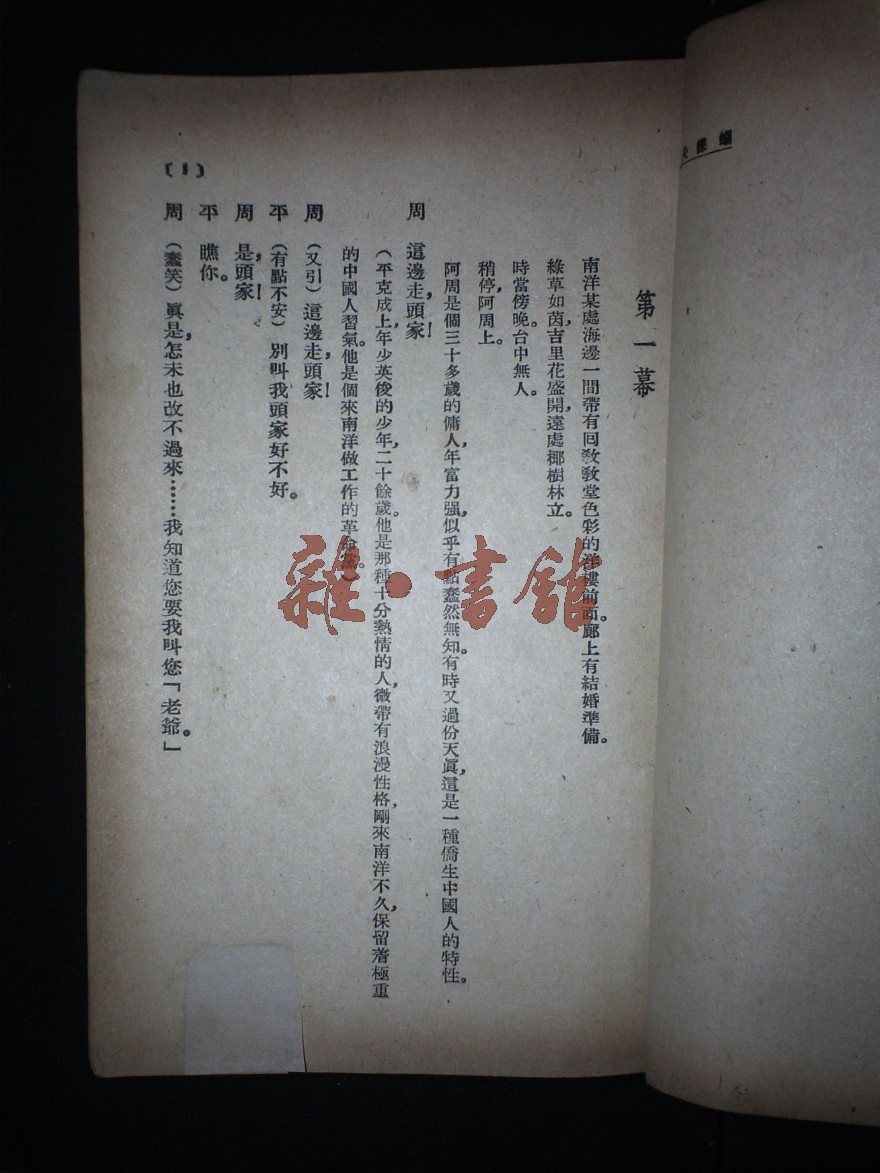 蝴蝶夫
第一幕
南洋某處海邊一間帶有回敎敎堂色彩的洋樓前面。廊上有結婚準備。
綠草如茵,吉里花盛開,遠處椰樹林立。
時當傍晚。台中無人。
稍停,阿周上。
阿周是個三十多歲的傭人,年富力强,似乎有點蠢然無知。有時又過份天眞,這是一種僑生中國人的特性。
周 這邊走,頭家!
(平克成上,年少英俊的少年,二十餘歲。他是那種十分熱情的人,微帶有浪漫性格,剛來南洋不久,保留着極重
的中國人習氣。他是個來南洋做工作的革命黨。)
周 (又引)這邊走,頭家!
平 (有點不安)別叫我頭家好不好。
周 是,頭家!
平 瞧你。
周 (蠢笑)眞是,怎末也改不過來……我知道您要我叫您「老爺。」
(1)
雜·書館